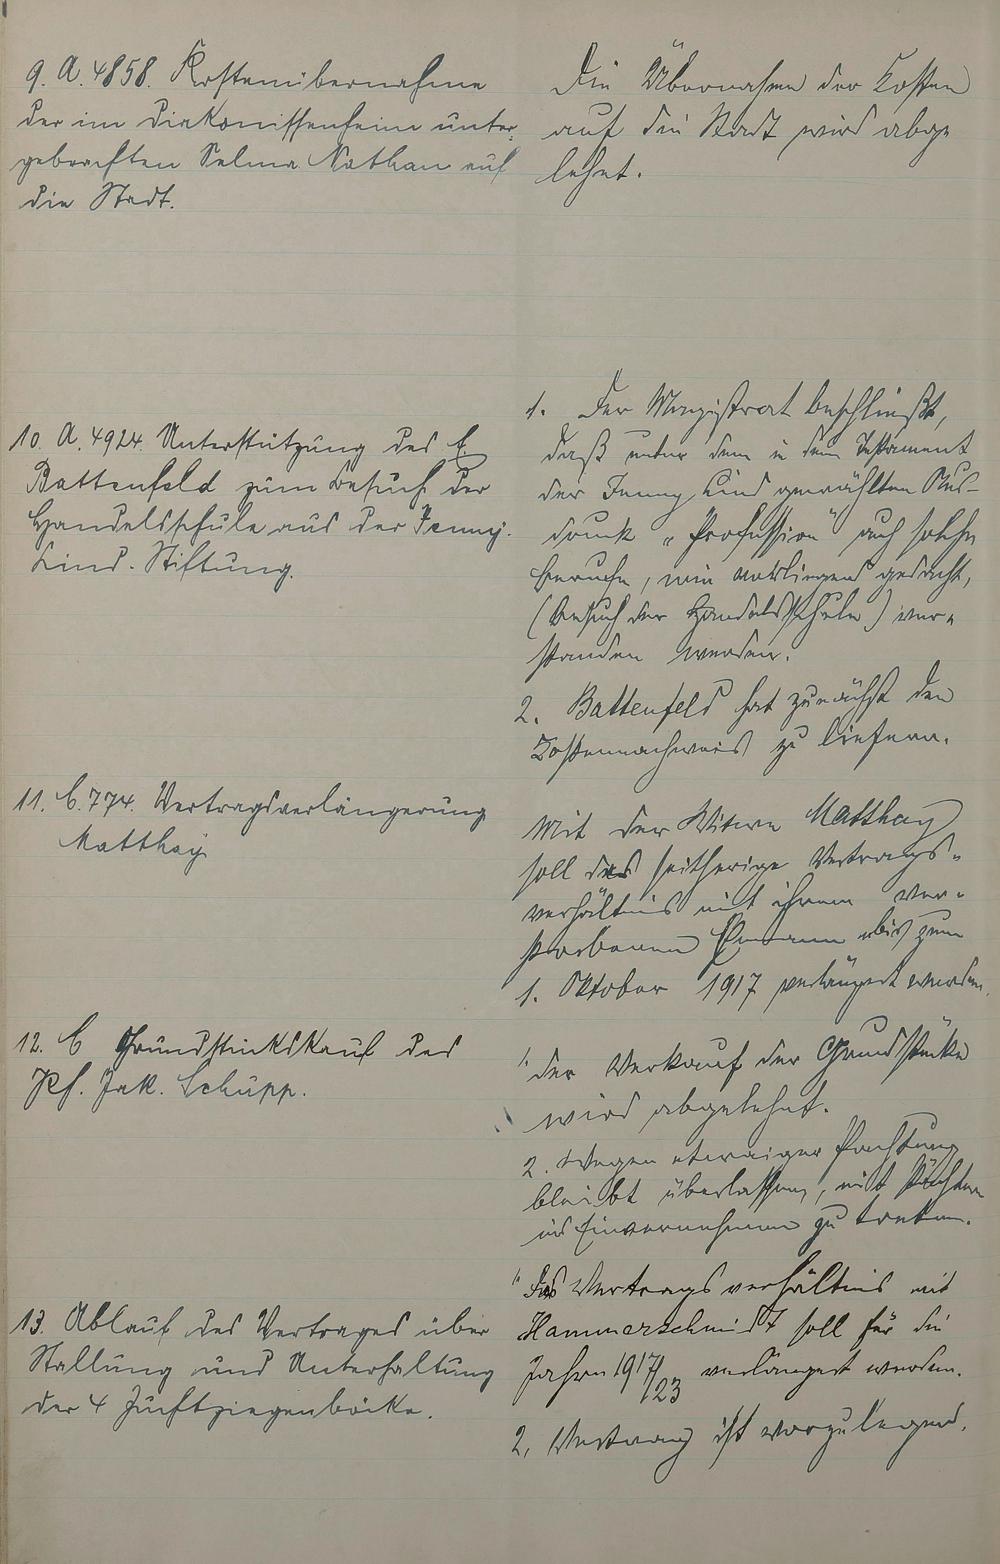 9. A. 4858. Kostenübernahme
der im Diakonissenheim unter-
gebrachten Selma Nathan auf
die Stadt.
Die Übernahme der Kosten
auf die Stadt wird abge
lehnt.
10. A. 4924. Unterstützung des E.
Battenfeld zum Besuch der
Handelsschule aus der Jenny-
Lind-Stiftung.
1. Der Magistrat beschließt,
daß unter dem in dem Testament
der Jenny Lind gewählten Aus-
druck "Profession" auch solche
Berufe, wie vorliegend gedacht,
(Besuch der Handelsschule) ver-
standen werden.
2. Battenfeld hat zunächst den
Kostennachweis zu liefern.
11. C. 774. Vertragsverlängerung
Matthay
Mit der Witwe Matthay
soll das seitherige Vertrags-
verhältnis mit ihrem ver-
storbenen Ehemann bis zum
1. Oktober 1917 verlängert werden.
12. C Grundstückskauf des
Kf. Jak. Schupp.
1. der Verkauf der Grundstücke
wird abgelehnt.
2. Wegen etwaiger Pachtung
bleibt überlassen, mit Pächtern
ins Einvernehmen zu treten.
13. Ablauf des Vertrages über
Stallung und Unterhaltung
der 4 Zuchtziegenböcke.
1. Das Vertragsverhältnis mit
Hammerschmidt soll für die
Jahre 1917/23 verlängert werden.
2. Vertrag ist vorzulegen.